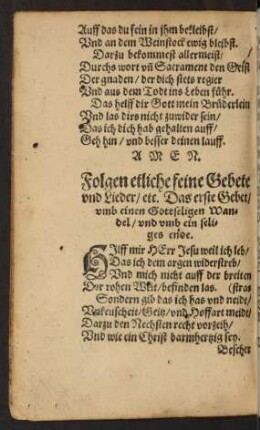 Auff das du fein in jhm bekleibst/
Vnd an dem Weinstock ewig bleibst.
Darzu bekommest allermeist/
Durchs wort vñ Sacrament den Geist
Der gnaden/ der dich stets regier
Vnd aus dem Todt ins Leben führ.
Das helff dir Gott mein Brüderlein
Vnd las dirs nicht zuwider sein/
Das ich dich hab gehalten auff/
Geh hin/ vnd besser deinen lauff.
A M E N.
Folgen etliche feine Gebete
vnd Lieder/ etc. Das erste Gebet/
vmb einen Gottseligen Wan-
del/ vnd vmb ein seli-
ges ende.
HIlff mir HErr Jesu weil ich leb/
Das ich dem argen widerstreb/
Vnd mich nicht auff der breiten
Der rohen Welt/ befinden las. (stras
Sondern gib das ich has vnd neidt/
Vnkeuscheit/ Geitz/ vnd Hoffart meidt/
Darzu den Nechsten recht vorzeih/
Vnd wie ein Christ barmhertzig sey.
Bescher